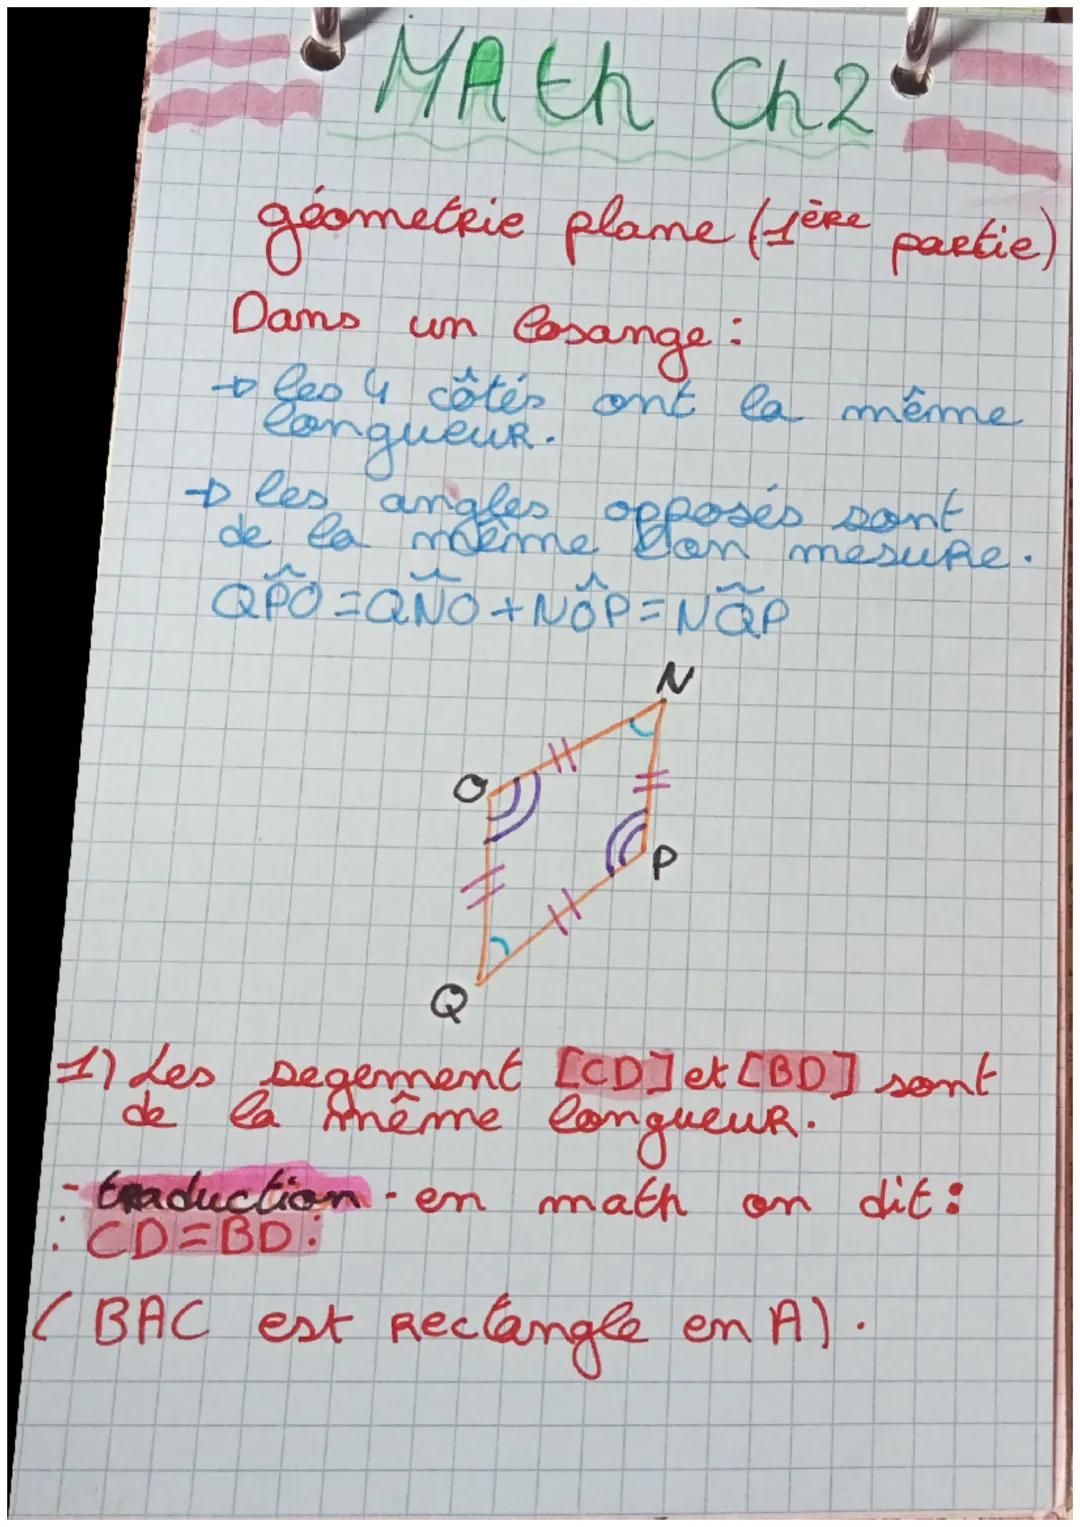 MAth Ch2
géometrie plane (1ère partie)
Dans un losange :
→ les 4 côtés ont la même
longueur.
→ les angles opposés sont
de la même mesure.
QP̂O = QN̂O + NÔP = NQ̂P
N
O
P
Q
1) Les segement [CD] et [BD] sont
de la même longueur.
- traduction - en math on dit :
: CD = BD :
( BAC est rectangle en A) .